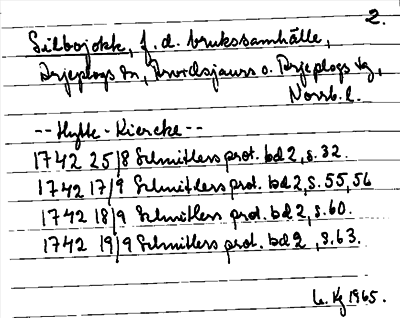 2.
Silbojokk, f. d. brukssamhälle,
Arjeplogs sn, Arvidsjaurs o. Arjeplogs tg,
Norrb. l.
-- Hytte-Kiercke --
1742 25/8 Schnitlers prot. bd 2, s. 32.
1742 17/9 Schnitlers prot. bd 2, s. 55, 56
1742 18/9 Schnitlers prot. bd 2, s. 60.
1742 19/9 Schnitlers prot. bd 2, s. 63.
1965.